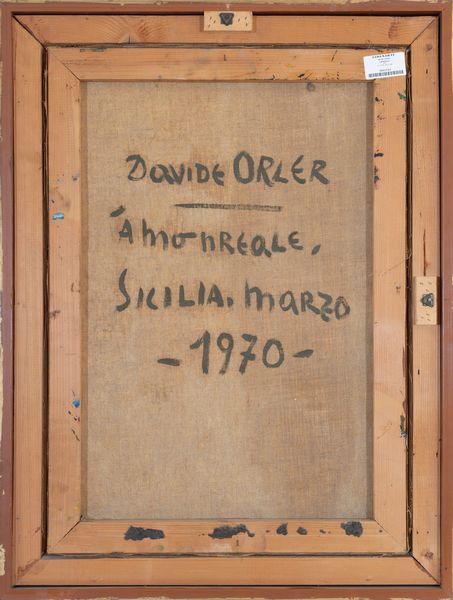 Davide ORLER
"A MONREALE,
SICILIA. MARZO
- 1970 -